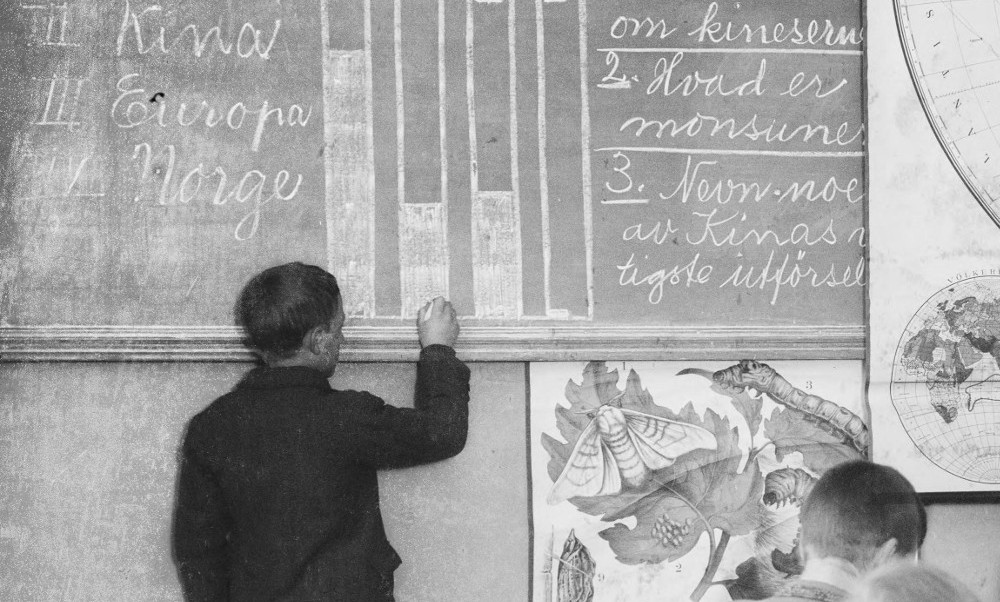 II Kina
III Europa
IV Norge
om kineserne
2. Hvad er
monsuner
3. Nevn noe
av Kinas
tigste utförsel
1
3
2
9
VÖLKER